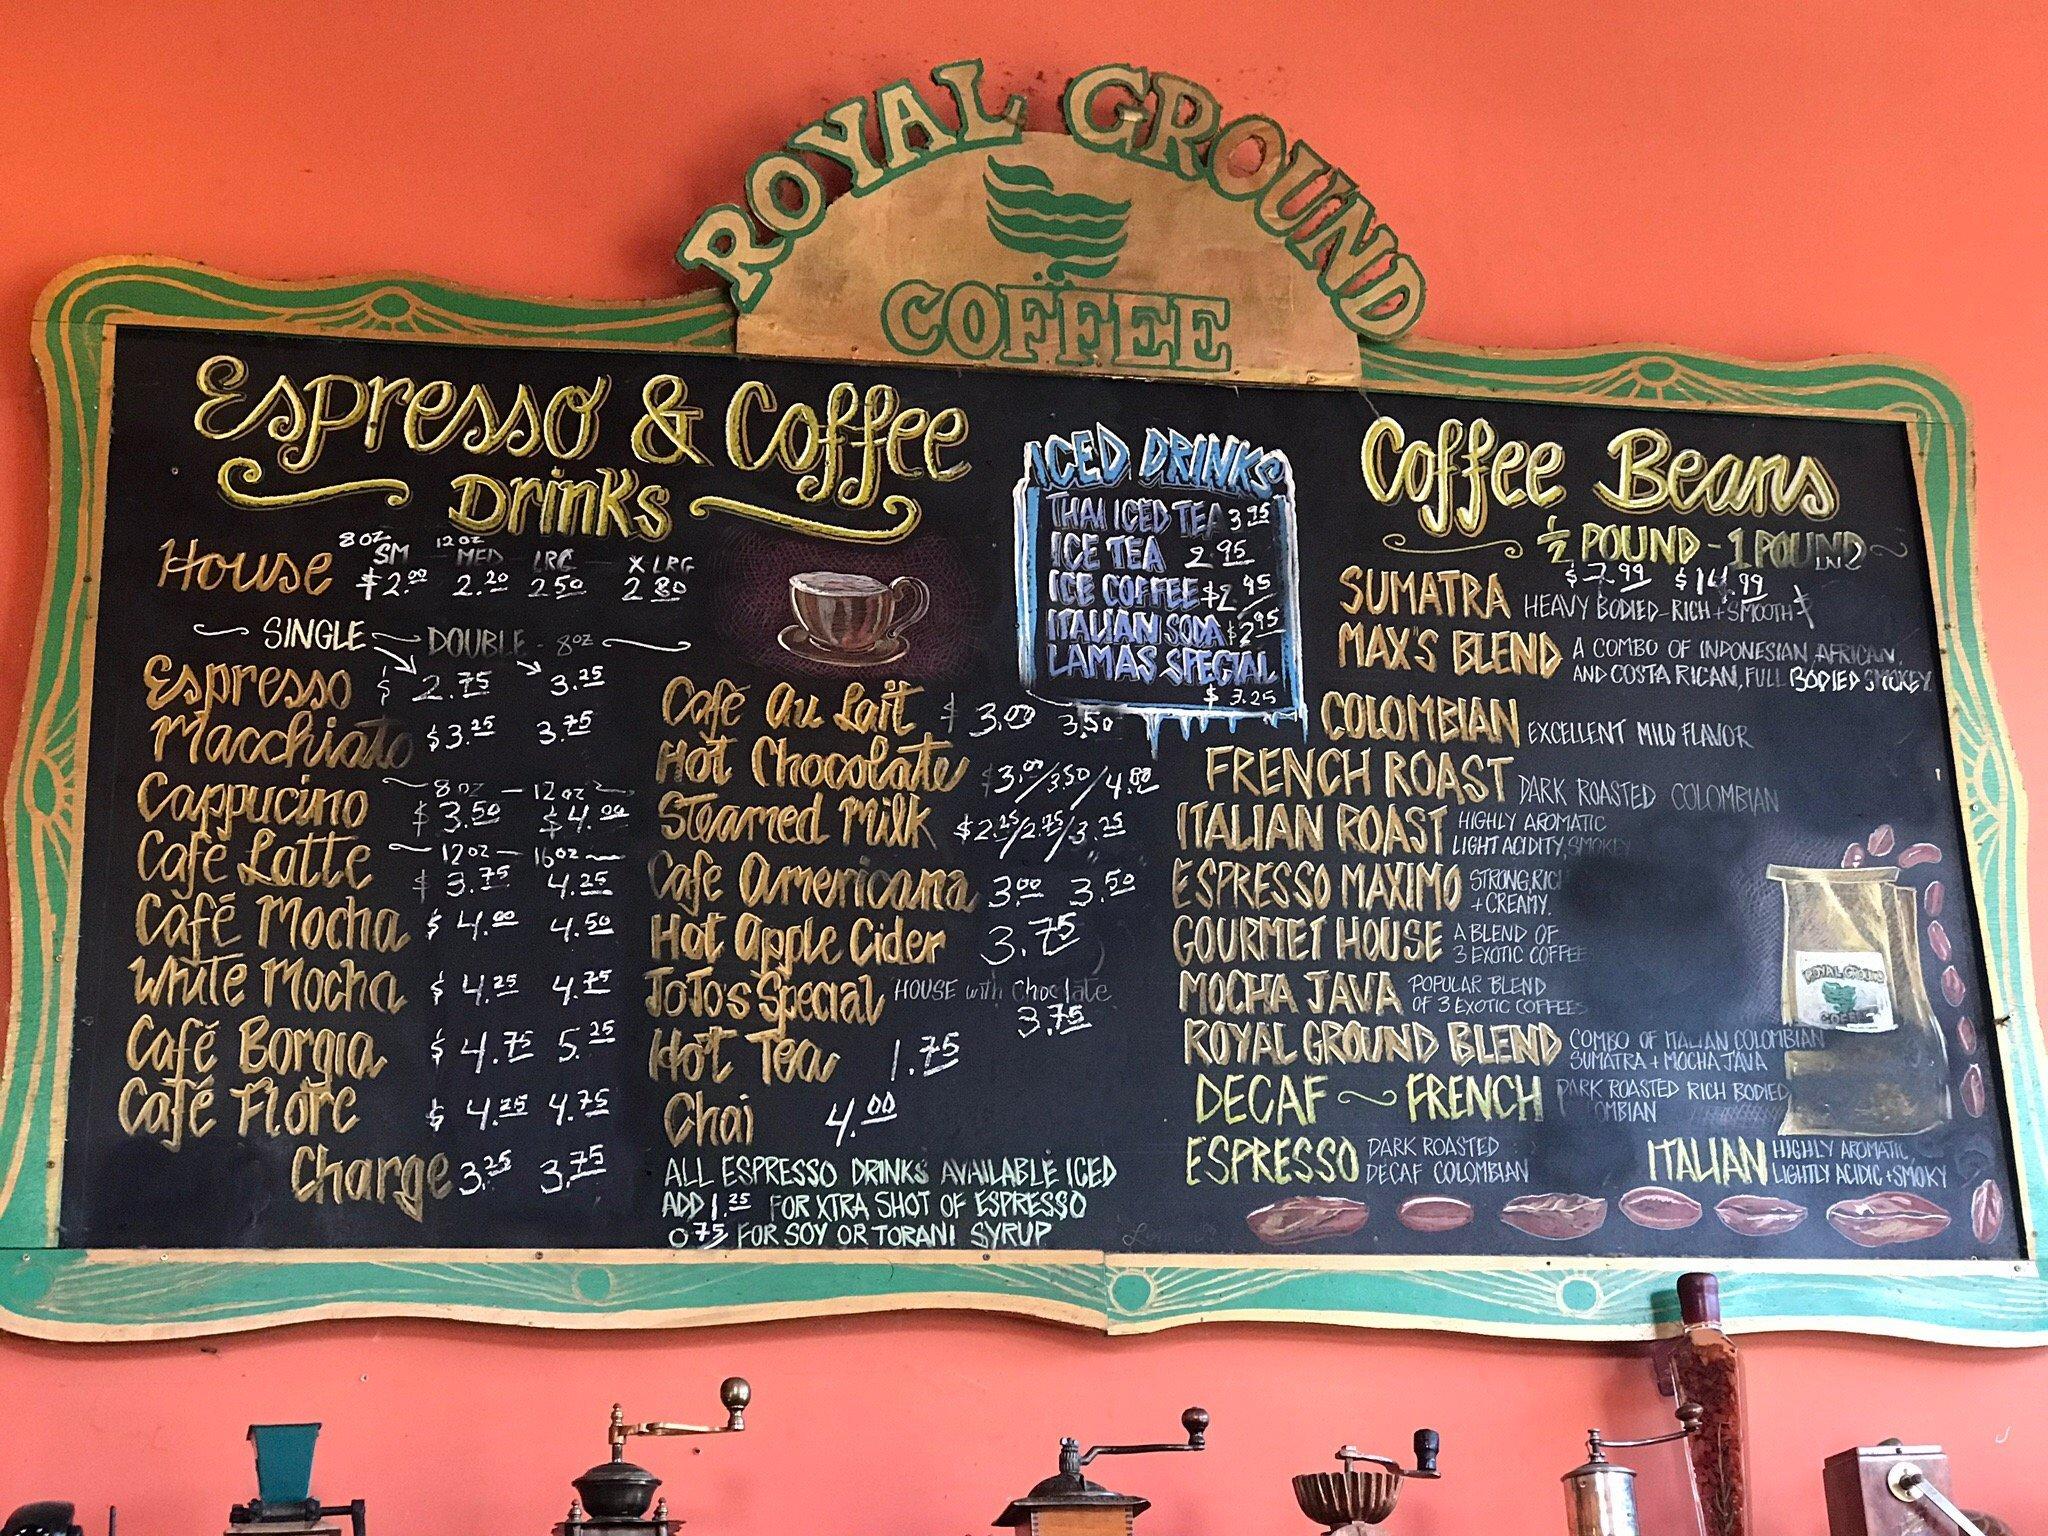 ROYAL GROUND
COFFEE
Espresso & Coffee
Drinks
8 OZ 12 OZ
SM MED LRG X LRG
House $2.00 2.20 2.50 2.80
SINGLE DOUBLE - 8oz
Espresso $ 2.75 3.25
Macchiato $3.25 3.75
8 OZ - 12 OZ
Cappucino $3.50 $4.00
12 OZ - 16 OZ
Café Latte $3.75 4.25
Café Mocha $4.00 4.50
White Mocha $4.25 4.75
Café Borgia $4.75 5.25
Café Flore $4.25 4.75
Charge 3.25 3.75
Café Au Lait $3.00 3.50
Hot Chocolate $3.00/3.50/4.00
Steamed Milk $2.25/2.75/3.25
Cafe Americana 3.00 3.50
Hot Apple Cider 3.75
JoJo's Special HOUSE with Choclate
3.75
Hot Tea 1.75
Chai 4.00
ALL ESPRESSO DRINKS AVAILABLE ICED
ADD 1.25 FOR XTRA SHOT OF ESPRESSO
0.75 FOR SOY OR TORANI SYRUP
ICED DRINKS
THAI ICED TEA 3.95
ICE TEA 2.95
ICE COFFEE $2.95
ITALIAN SODA $2.95
LAMAS SPECIAL
$3.25
Coffee Beans
1/2 POUND - 1 POUND
$7.99 $14.99
SUMATRA HEAVY BODIED - RICH + SMOOTH
MAX'S BLEND A COMBO OF INDONESIAN, AFRICAN,
AND COSTA RICAN, FULL BODIED SMOKEY
COLOMBIAN EXCELLENT MILD FLAVOR
FRENCH ROAST DARK ROASTED COLOMBIAN
ITALIAN ROAST HIGHLY AROMATIC
LIGHT ACIDITY, SMOKEY
ESPRESSO MAXIMO STRONG, RICH
+ CREAMY.
GOURMET HOUSE A BLEND OF
3 EXOTIC COFFEES
MOCHA JAVA POPULAR BLEND
OF 3 EXOTIC COFFEES
ROYAL GROUND BLEND COMBO OF ITALIAN COLOMBIAN
SUMATRA + MOCHA JAVA
DECAF ~ FRENCH DARK ROASTED RICH BODIED
OMBIAN
ESPRESSO DARK ROASTED
DECAF COLOMBIAN
ITALIAN HIGHLY AROMATIC,
LIGHTLY ACIDIC + SMOKY
ROYAL GROUND
COFFEE